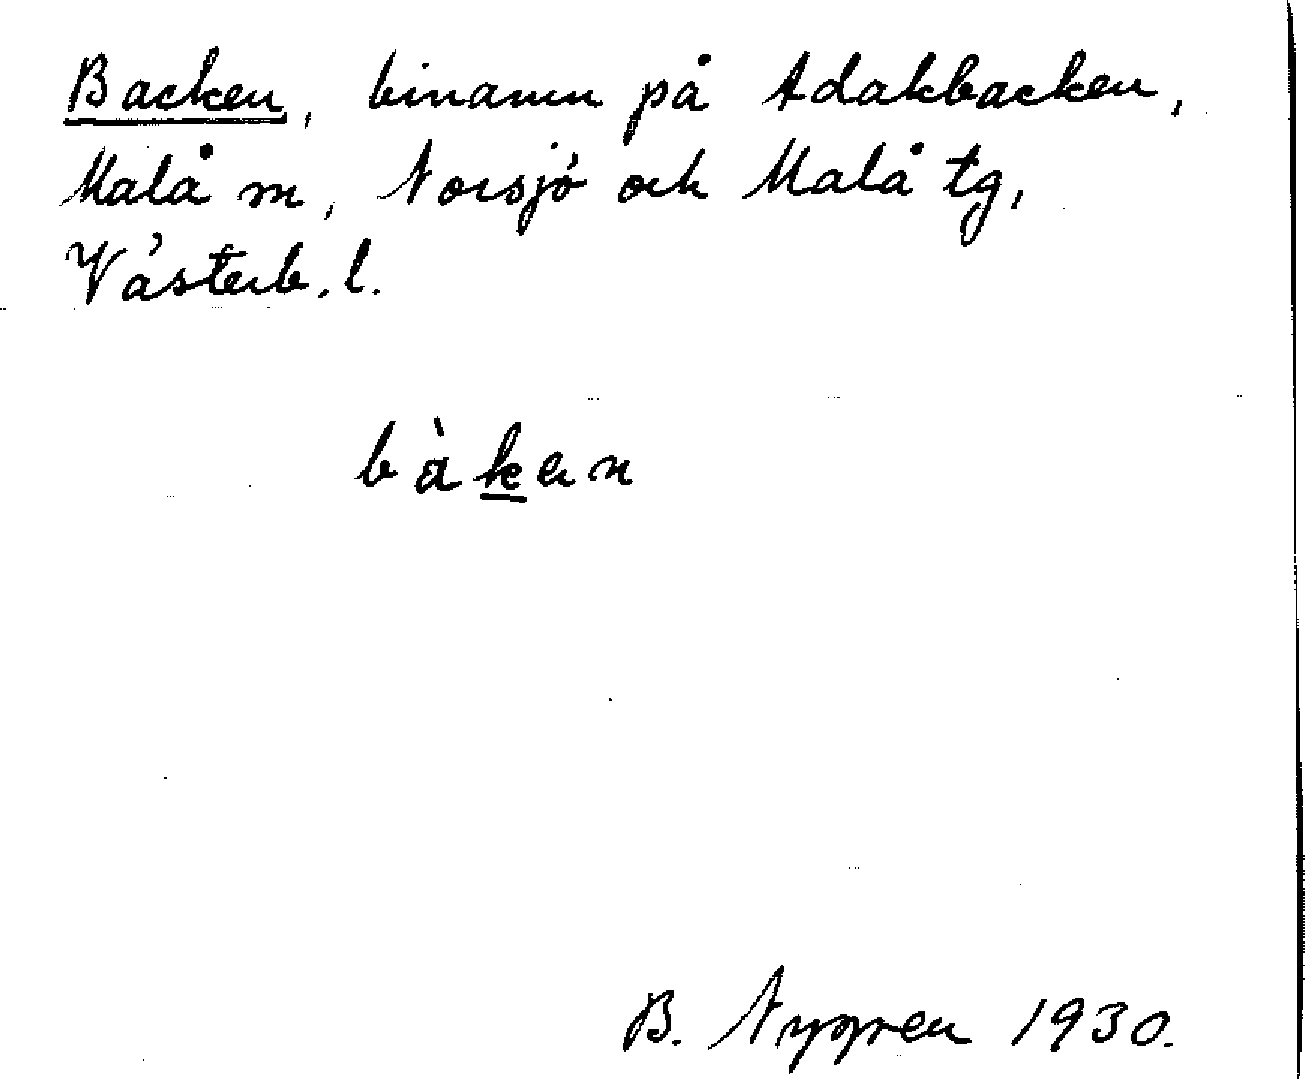 Backen, binamn på Adakbacken,
Malå sn, Norsjö och Malå tg,
Västerb. l.
bàk̲en
B. Nygren 1930.